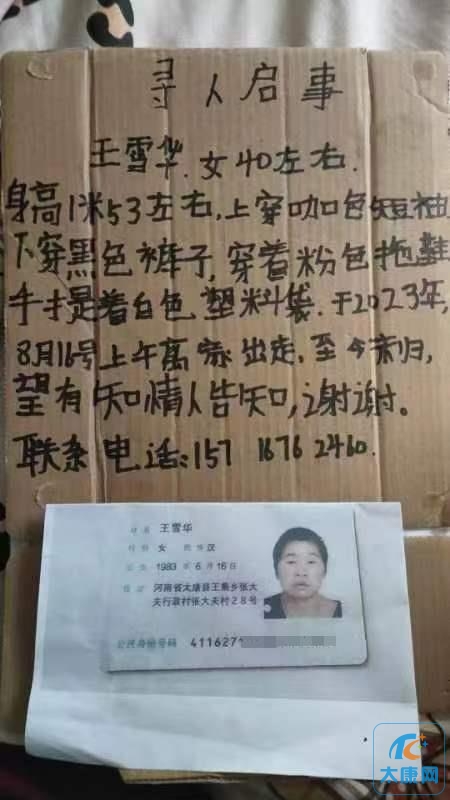 寻人启事
王雪华.女40左右.
身高1米53左右,上穿咖色短袖
下穿黑色裤子,穿着粉色拖鞋
手提着白色塑料袋.于2023年,
8月16号上午离家出走,至今未归,
望有知情人告知,谢谢。
联系电话:157 1676 2460.
姓名 王雪华
性别 女 民族 汉
出生 1983 年 6 月 16 日
住址 河南省太康县王集乡张大
夫行政村张大夫村28号
公民身份号码 4116271
太康网